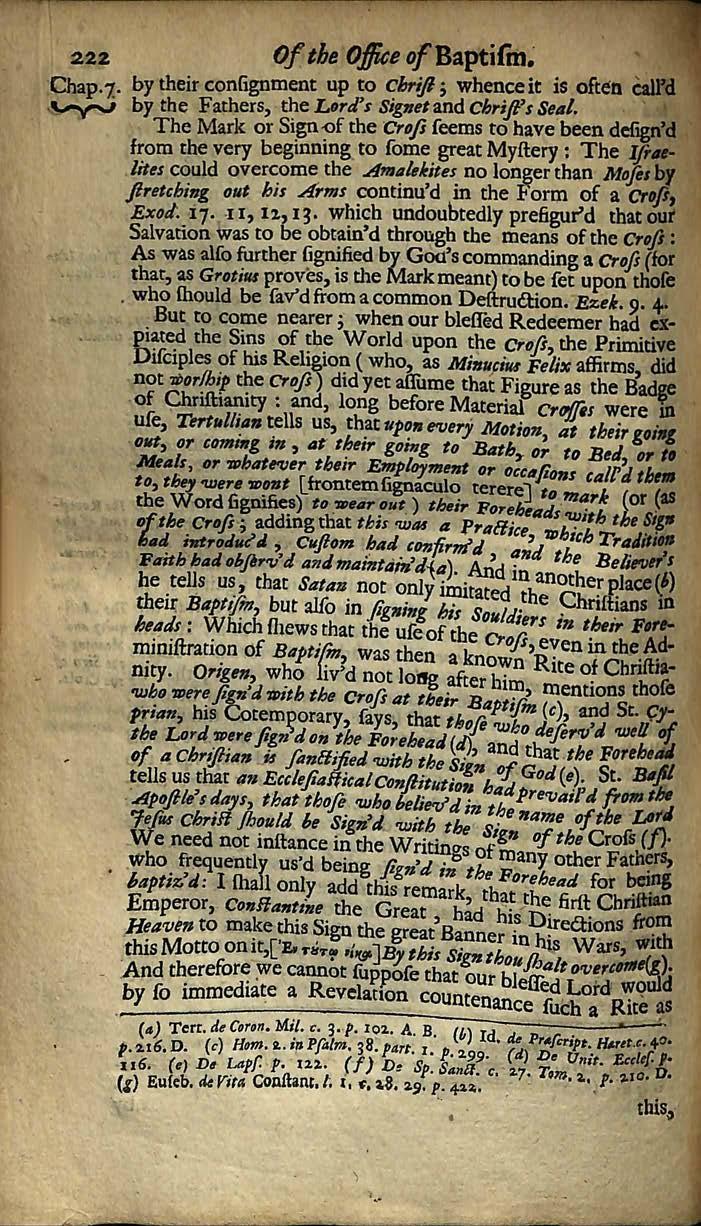 222 Of the Office of Baptiſm.
Chap. 7. by their conſignment up to Chriſt; whence it is often call'd
by the Fathers, the Lord's Signet and Chriſt's Seal.
The Mark or Sign of the Croſs ſeems to have been deſign'd
from the very beginning to ſome great Myſtery: The Iſrae-
lites could overcome the Amalekites no longer than Moſes by
ſtretching out his Arms continu'd in the Form of a Croſs,
Exod. 17. 11, 12, 13. which undoubtedly prefigur'd that our
Salvation was to be obtain'd through the means of the Croſs:
As was alſo further ſignified by God's commanding a Croſs (for
that, as Grotius proves, is the Mark meant) to be ſet upon thoſe
who ſhould be ſav'd from a common Deſtruction. Ezek. 9. 4.
But to come nearer; when our bleſſed Redeemer had ex-
piated the Sins of the World upon the Croſs, the Primitive
Diſciples of his Religion (who, as Minucius Felix affirms, did
not worſhip the Croſs) did yet aſſume that Figure as the Badge
of Chriſtianity: and, long before Material Croſſes were in
uſe, Tertullian tells us, that upon every Motion, at their going
out, or coming in, at their going to Bath, or to Bed, or to
Meals, or whatever their Employment or occaſions call'd them
to, they were wont [frontem ſignaculo terere] to mark (or (as
the Word ſignifies) to wear out) their Foreheads with the Sign
of the Croſs; adding that this was a Practice, which Tradition
had introduc'd, Cuſtom had confirm'd, and the Believer's
Faith had obſerv'd and maintain'd (a). And in another place (b)
he tells us, that Satan not only imitated the Chriſtians in
their Baptiſm, but alſo in ſigning his Souldiers in their Fore-
heads: Which ſhews that the uſe of the Croſs, even in the Ad-
miniſtration of Baptiſm, was then a known Rite of Chriſtia-
nity. Origen, who liv'd not long after him, mentions thoſe
who were ſign'd with the Croſs at their Baptiſm (c), and St. Cy-
prian, his Cotemporary, ſays, that thoſe who deſerv'd well of
the Lord were ſign'd on the Forehead (d), and that the Forehead
of a Chriſtian is ſanctified with the Sign of God (e). St. Baſil
tells us that an Eccleſiaſtical Conſtitution had prevail'd from the
Apoſtle's days, that thoſe who believ'd in the name of the Lord
Jeſus Chriſt ſhould be Sign'd with the Sign of the Croſs (f).
We need not inſtance in the Writings of many other Fathers,
who frequently us'd being ſign'd in the Forehead for being
baptiz'd: I ſhall only add this remark, that the firſt Chriſtian
Emperor, Conſtantine the Great, had his Directions from
Heaven to make this Sign the great Banner in his Wars, with
this Motto on it, [Ἐν τούτῳ νίκα] By this Sign thou ſhalt overcome (g).
And therefore we cannot ſuppoſe that our bleſſed Lord would
by ſo immediate a Revelation countenance ſuch a Rite as
(a) Tert. de Coron. Mil. c. 3. p. 102. A. B. (b) Id. de Præſcript. Hæret. c. 40.
p. 216. D. (c) Hom. 2. in Pſalm. 38. part. 1. p. 299. (d) De Unit. Eccleſ. p.
116. (e) De Lapſ. p. 122. (f) De Sp. Sanct. c. 27. Tom. 2. p. 210. D.
(g) Euſeb. de Vita Conſtant. l. 1. c. 28. 29. p. 422.
this,